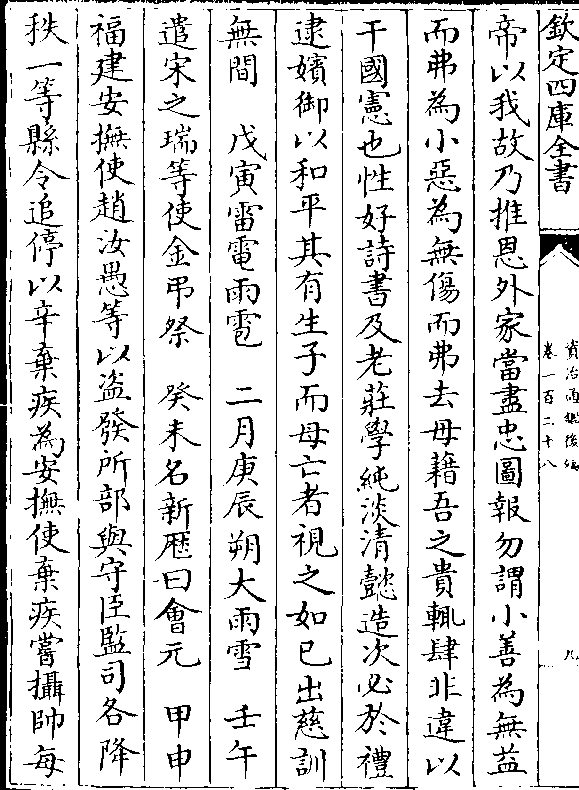 欽定四庫全書
資治通鑑後編
卷一百二十八
九
帝以我故乃推恩外家當盡忠圖報勿謂小善為無益
而弗為小惡為無傷而弗去毋藉吾之貴輒肆非違以
干國憲也性好詩書及老莊學純淡清懿造次必於禮
逮嬪御以和平其有生子而母亡者視之如已出慈訓
無間　戊寅雷電雨雹　二月庚辰朔大雨雪　壬午
遣宋之瑞等使金弔祭　癸未名新厯曰會元　甲申
福建安撫使趙汝愚等以盗發所部與守臣監司各降
秩一等縣令追停以辛棄疾為安撫使棄疾嘗攝帥每